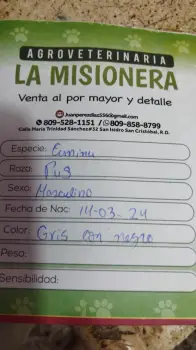 AGROVETERINARIA
LA MISIONERA
Venta al por mayor y detalle
Juanperezdiaz556@gmail.com
809-528-1151 / 809-858-8799
Calle María Trinidad Sánchez#32 San Isidro San Cristóbal, R.D.
Especie: Canina
Raza: Pug
Sexo: Masculino
Fecha de Nac: 14-03-24
Color: Gris con negro
Peso:
Sensibilidad: